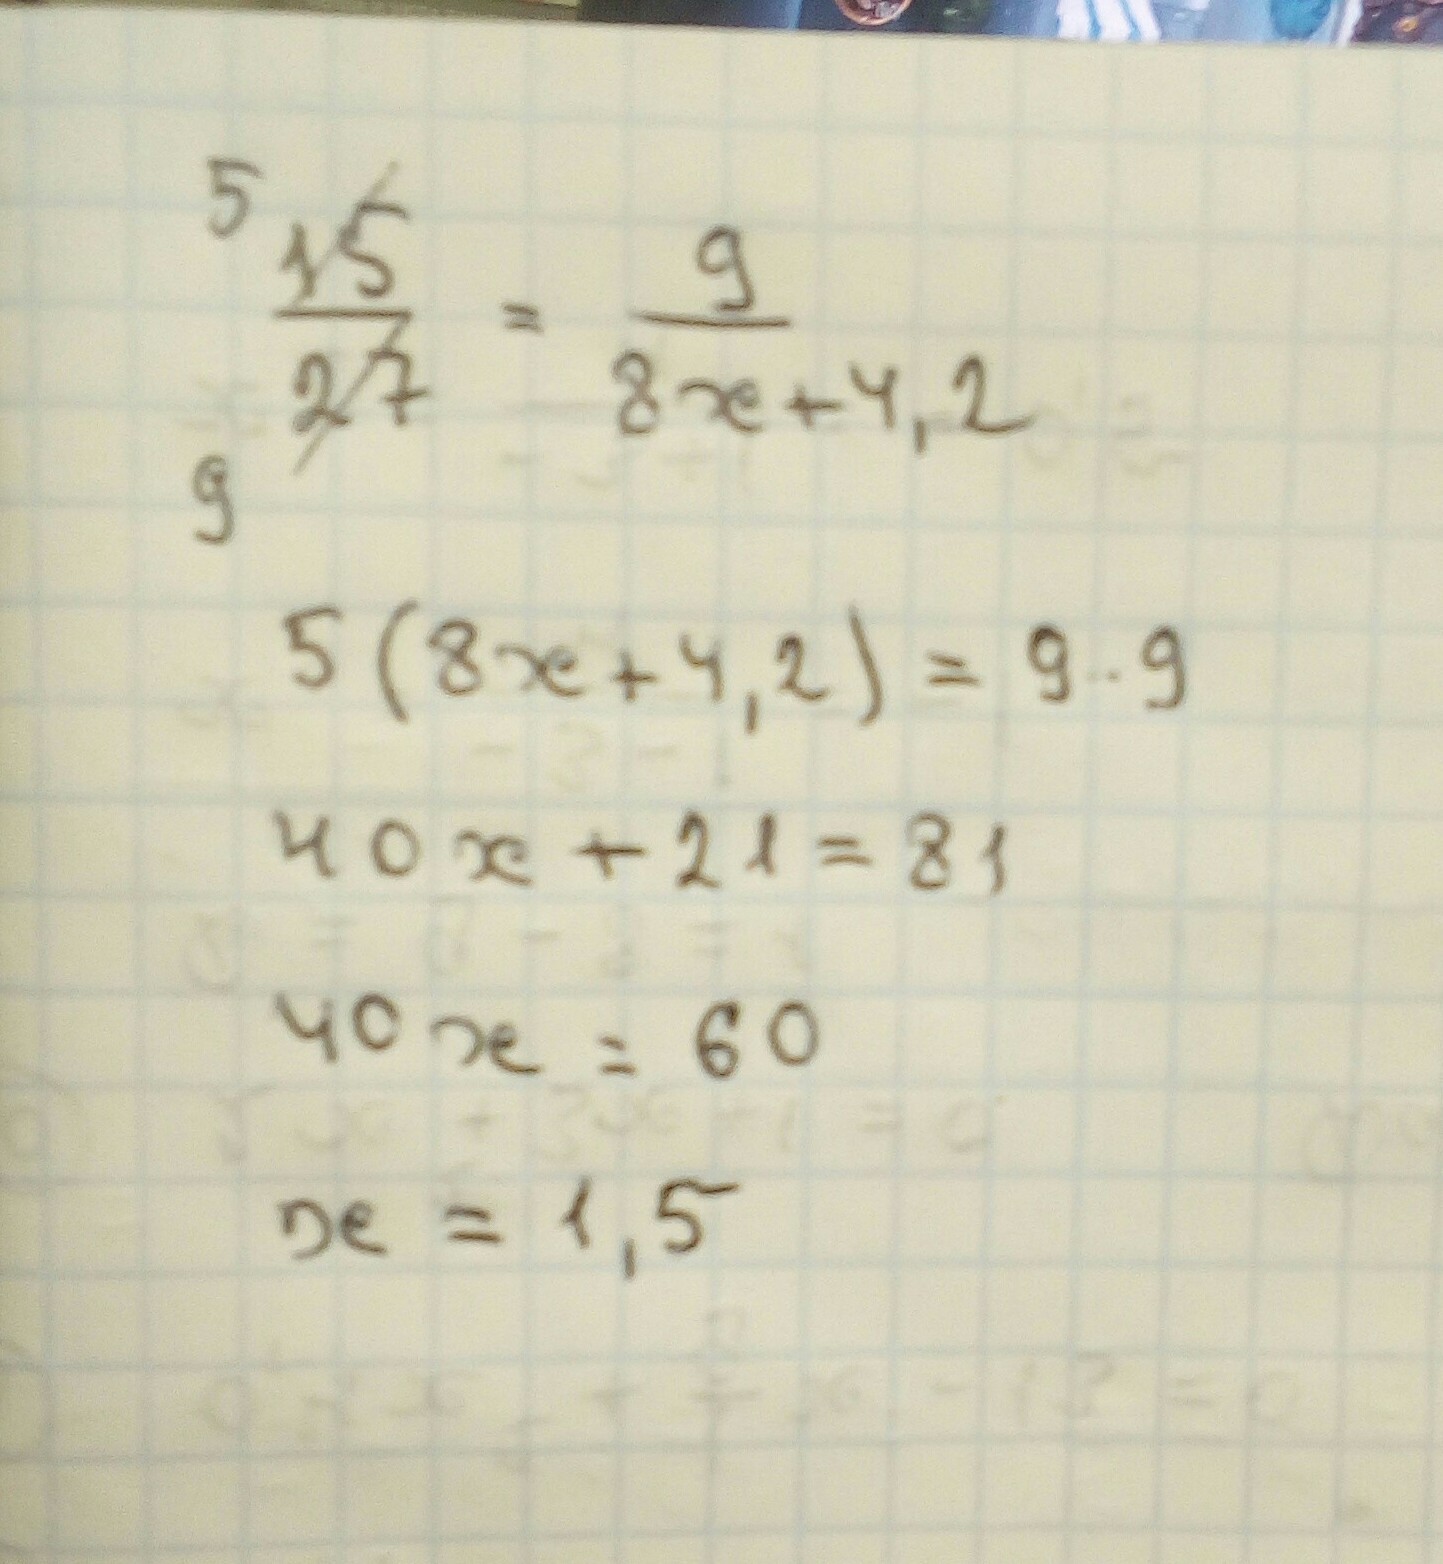 5 15/27 9 = 9/(8x+4,2)
5(8x+4,2)=9·9
40x+21=81
40x=60
x=1,5